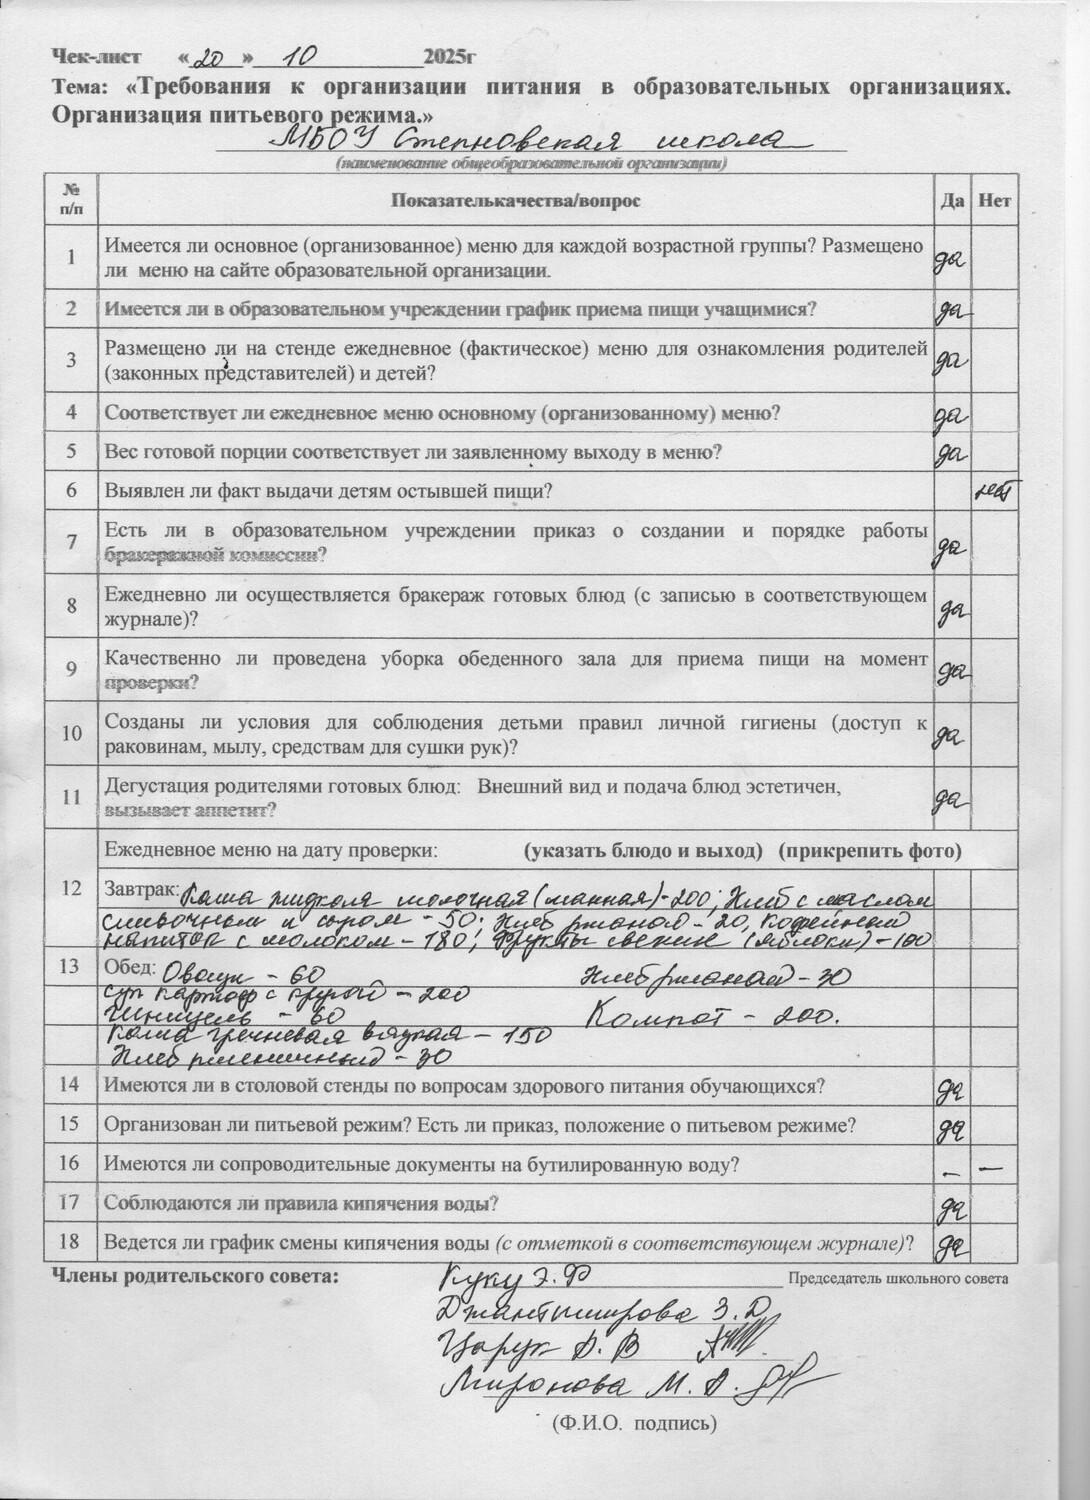 Чек-лист «20» 10 2025г
Тема: «Требования к организации питания в образовательных организациях.
Организация питьевого режима.»
МБОУ Степновская школа
(наименование общеобразовательной организации)
№ п/п Показателькачества/вопрос Да Нет
1 Имеется ли основное (организованное) меню для каждой возрастной группы? Размещено
ли меню на сайте образовательной организации. да
2 Имеется ли в образовательном учреждении график приема пищи учащимися? да
3 Размещено ли на стенде ежедневное (фактическое) меню для ознакомления родителей
(законных представителей) и детей? да
4 Соответствует ли ежедневное меню основному (организованному) меню? да
5 Вес готовой порции соответствует ли заявленному выходу в меню? да
6 Выявлен ли факт выдачи детям остывшей пищи? нет
7 Есть ли в образовательном учреждении приказ о создании и порядке работы
бракеражной комиссии? да
8 Ежедневно ли осуществляется бракераж готовых блюд (с записью в соответствующем
журнале)? да
9 Качественно ли проведена уборка обеденного зала для приема пищи на момент
проверки? да
10 Созданы ли условия для соблюдения детьми правил личной гигиены (доступ к
раковинам, мылу, средствам для сушки рук)? да
11 Дегустация родителями готовых блюд: Внешний вид и подача блюд эстетичен,
вызывает аппетит? да
Ежедневное меню на дату проверки: (указать блюдо и выход) (прикрепить фото)
12 Завтрак: Каша жидкая молочная (манная)-200; Хлеб с маслом
сливочным и сыром - 50; Хлеб ржаной - 20, Кофейный
напиток с молоком - 180; Фрукты свежие (яблоки) - 100
13 Обед: Овощи - 60 Хлеб ржаной - 30
суп картоф с крупой - 200
Шницель - 60 Компот - 200.
Каша гречневая вязкая - 150
Хлеб пшеничный - 30
14 Имеются ли в столовой стенды по вопросам здорового питания обучающихся? да
15 Организован ли питьевой режим? Есть ли приказ, положение о питьевом режиме? да
16 Имеются ли сопроводительные документы на бутилированную воду? – –
17 Соблюдаются ли правила кипячения воды? да
18 Ведется ли график смены кипячения воды (с отметкой в соответствующем журнале)? да
Члены родительского совета: Куку Э. Ф Председатель школьного совета
З. Д
Царук В
Миронова М. А.
(Ф.И.О. подпись)